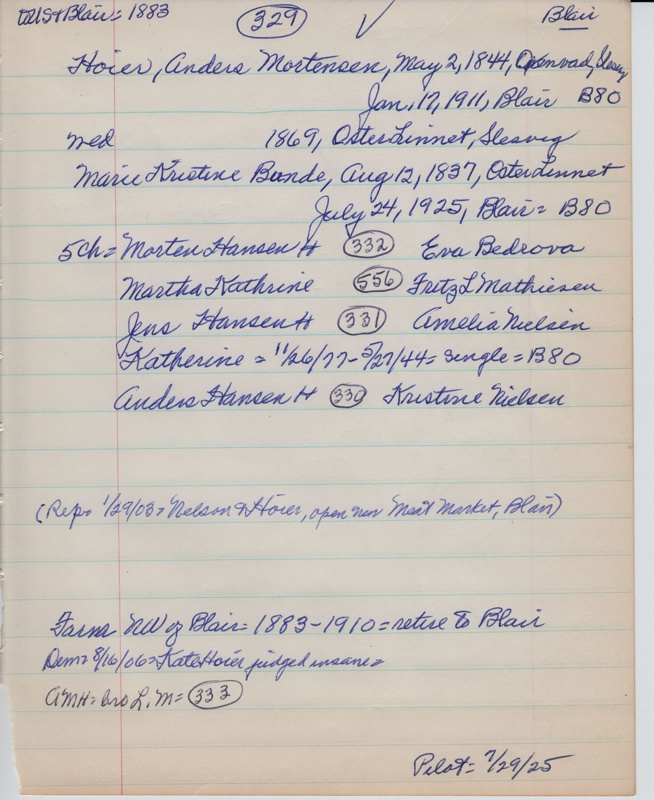 to US & Blair = 1883 329 Blair
Hoier, Anders Mortensen, May 2, 1844, Openvad, Slesvig
Jan, 17, 1911, Blair B80
wed 1869, OsterLinnet, Slesvig
Marie Kristine Bunde, Aug 12, 1837, OsterLinnet
July 24, 1925, Blair = B80
5 ch = Morten Hansen H 332 Eva Bedrova
Martha Kathrine 556 Fritz L Mathiesen
Jens Hansen H 331 Amelia Nielsen
Katherine = 11/26/77 - 5/27/44 = single = B80
Anders Hansen H 330 Kristine Nielsen
(Rep = 1/29/03 = Nelson & Hoier, open new Meat Market, Blair)
Farm NW of Blair = 1883 - 1910 = retire to Blair
Dem = 8/16/06 = Kate Hoier judged insane =
AMH = bro L. M = 333
Pilot = 7/29/25